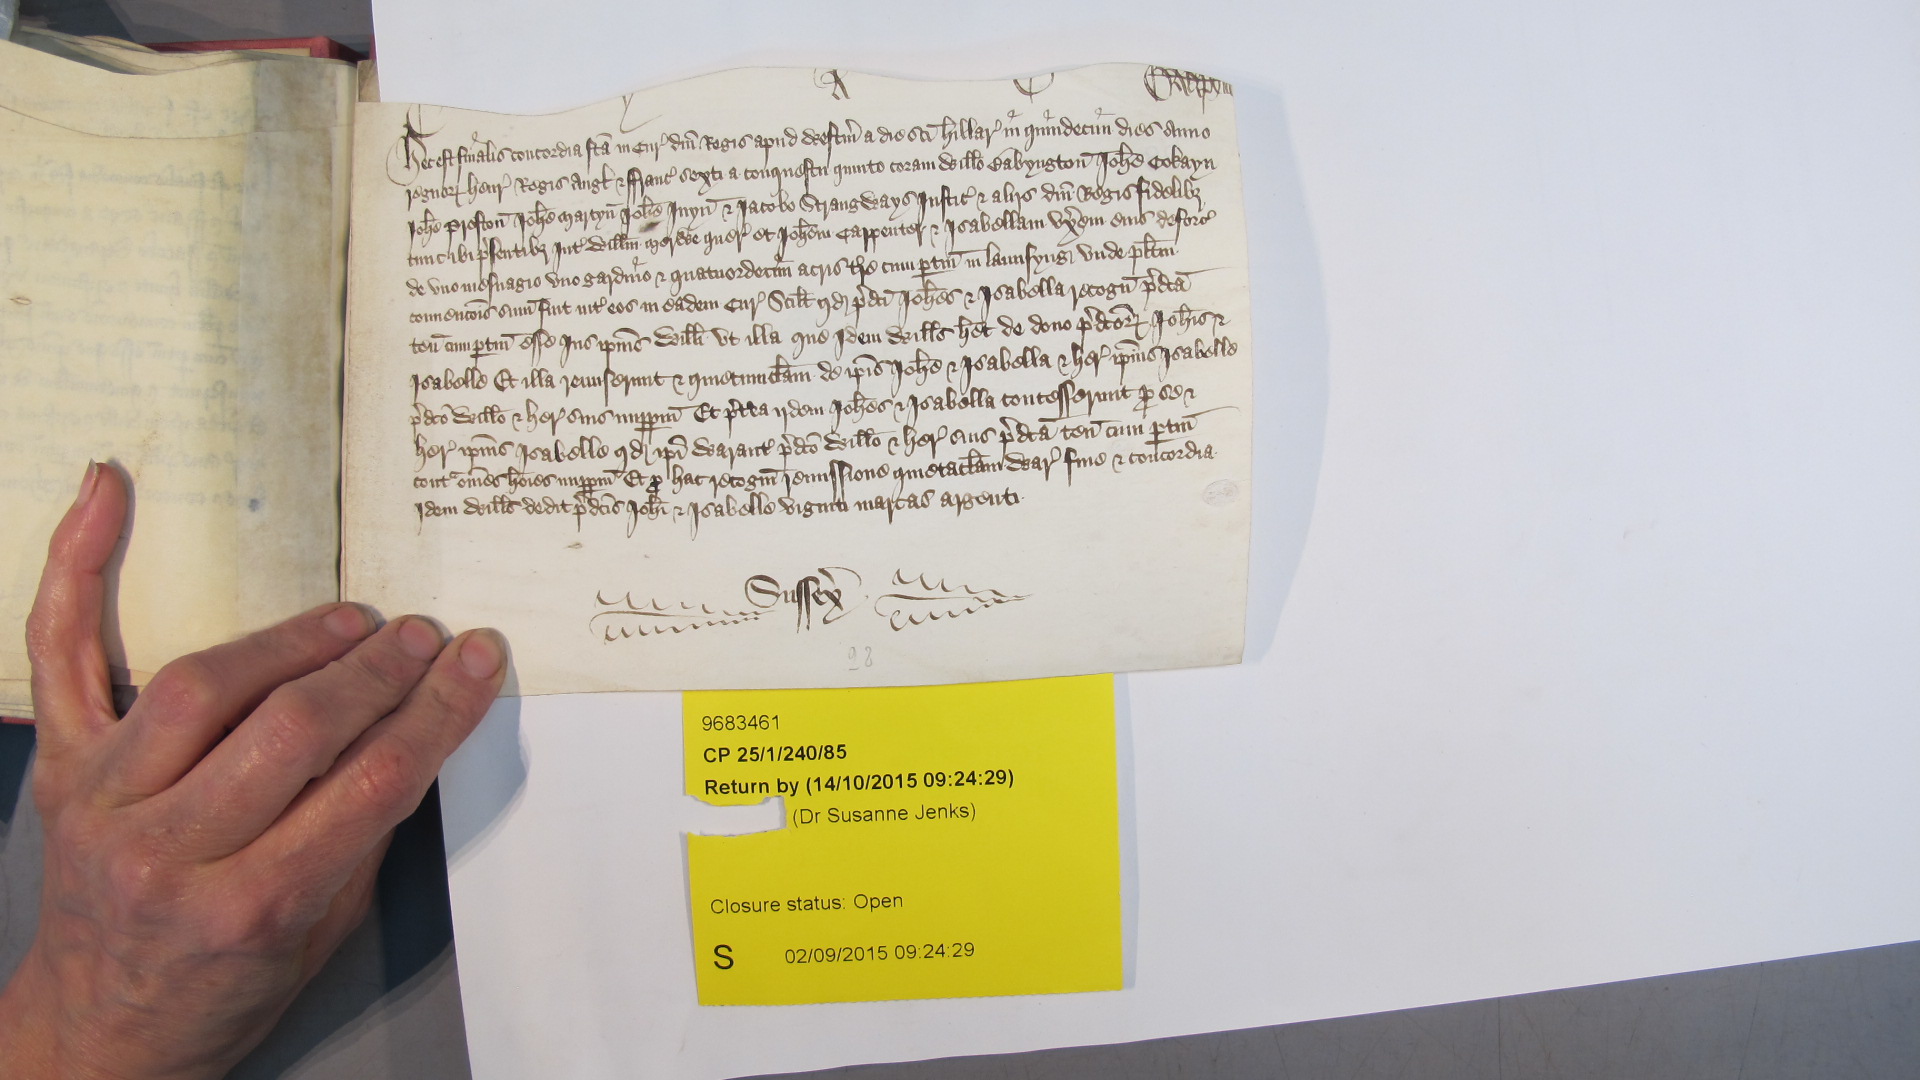 Hec est finalis concordia fca in Cur dni Regis apud Westm a die sci Hillar in quindecim dies Anno
regnor Henr Regis Angl & Franc sexti a conquestu quinto coram Willo Babyngton Iohe Cokayn
Iohe Preston Iohe Martyn Iohe Inyn & Iacobo Strangways Iustic & aliis dni Regis fidelibz
tunc ibi psentibz Int Willm quer et Iohem Carpenter & Isabellam vxem eius deforc
de vno mesuagio vno gardino & quatuordecim acris tre cum ptin in Launsyng Vnde plitm
convencois sum fuit int eos in eadem Cur Scilt qd pdci Iohes & Isabella recogn pdca
ten cum ptin esse Ius ipius Willi Vt illa que idem Wills het de dono pdcor Iohis &
Isabelle Et illa remiserunt & quietumclam de ipis Iohe & Isabella & her ipius Isabelle
pdco Willo & her suis imppm Et ptea iidem Iohes & Isabella concesserunt p se &
her ipius Isabelle qd ipi Warant pdco Willo & her suis pdca ten cum ptin
cont omes hoies imppm Et p hac recogn remissione quietaclam War fine & concordia
Idem Wills dedit pdcis Iohi & Isabelle viginti marcas argenti
Sussex
28
9683461
CP 25/1/240/85
Return by (14/10/2015 09:24:29)
(Dr Susanne Jenks)
Closure status: Open
S 02/09/2015 09:24:29